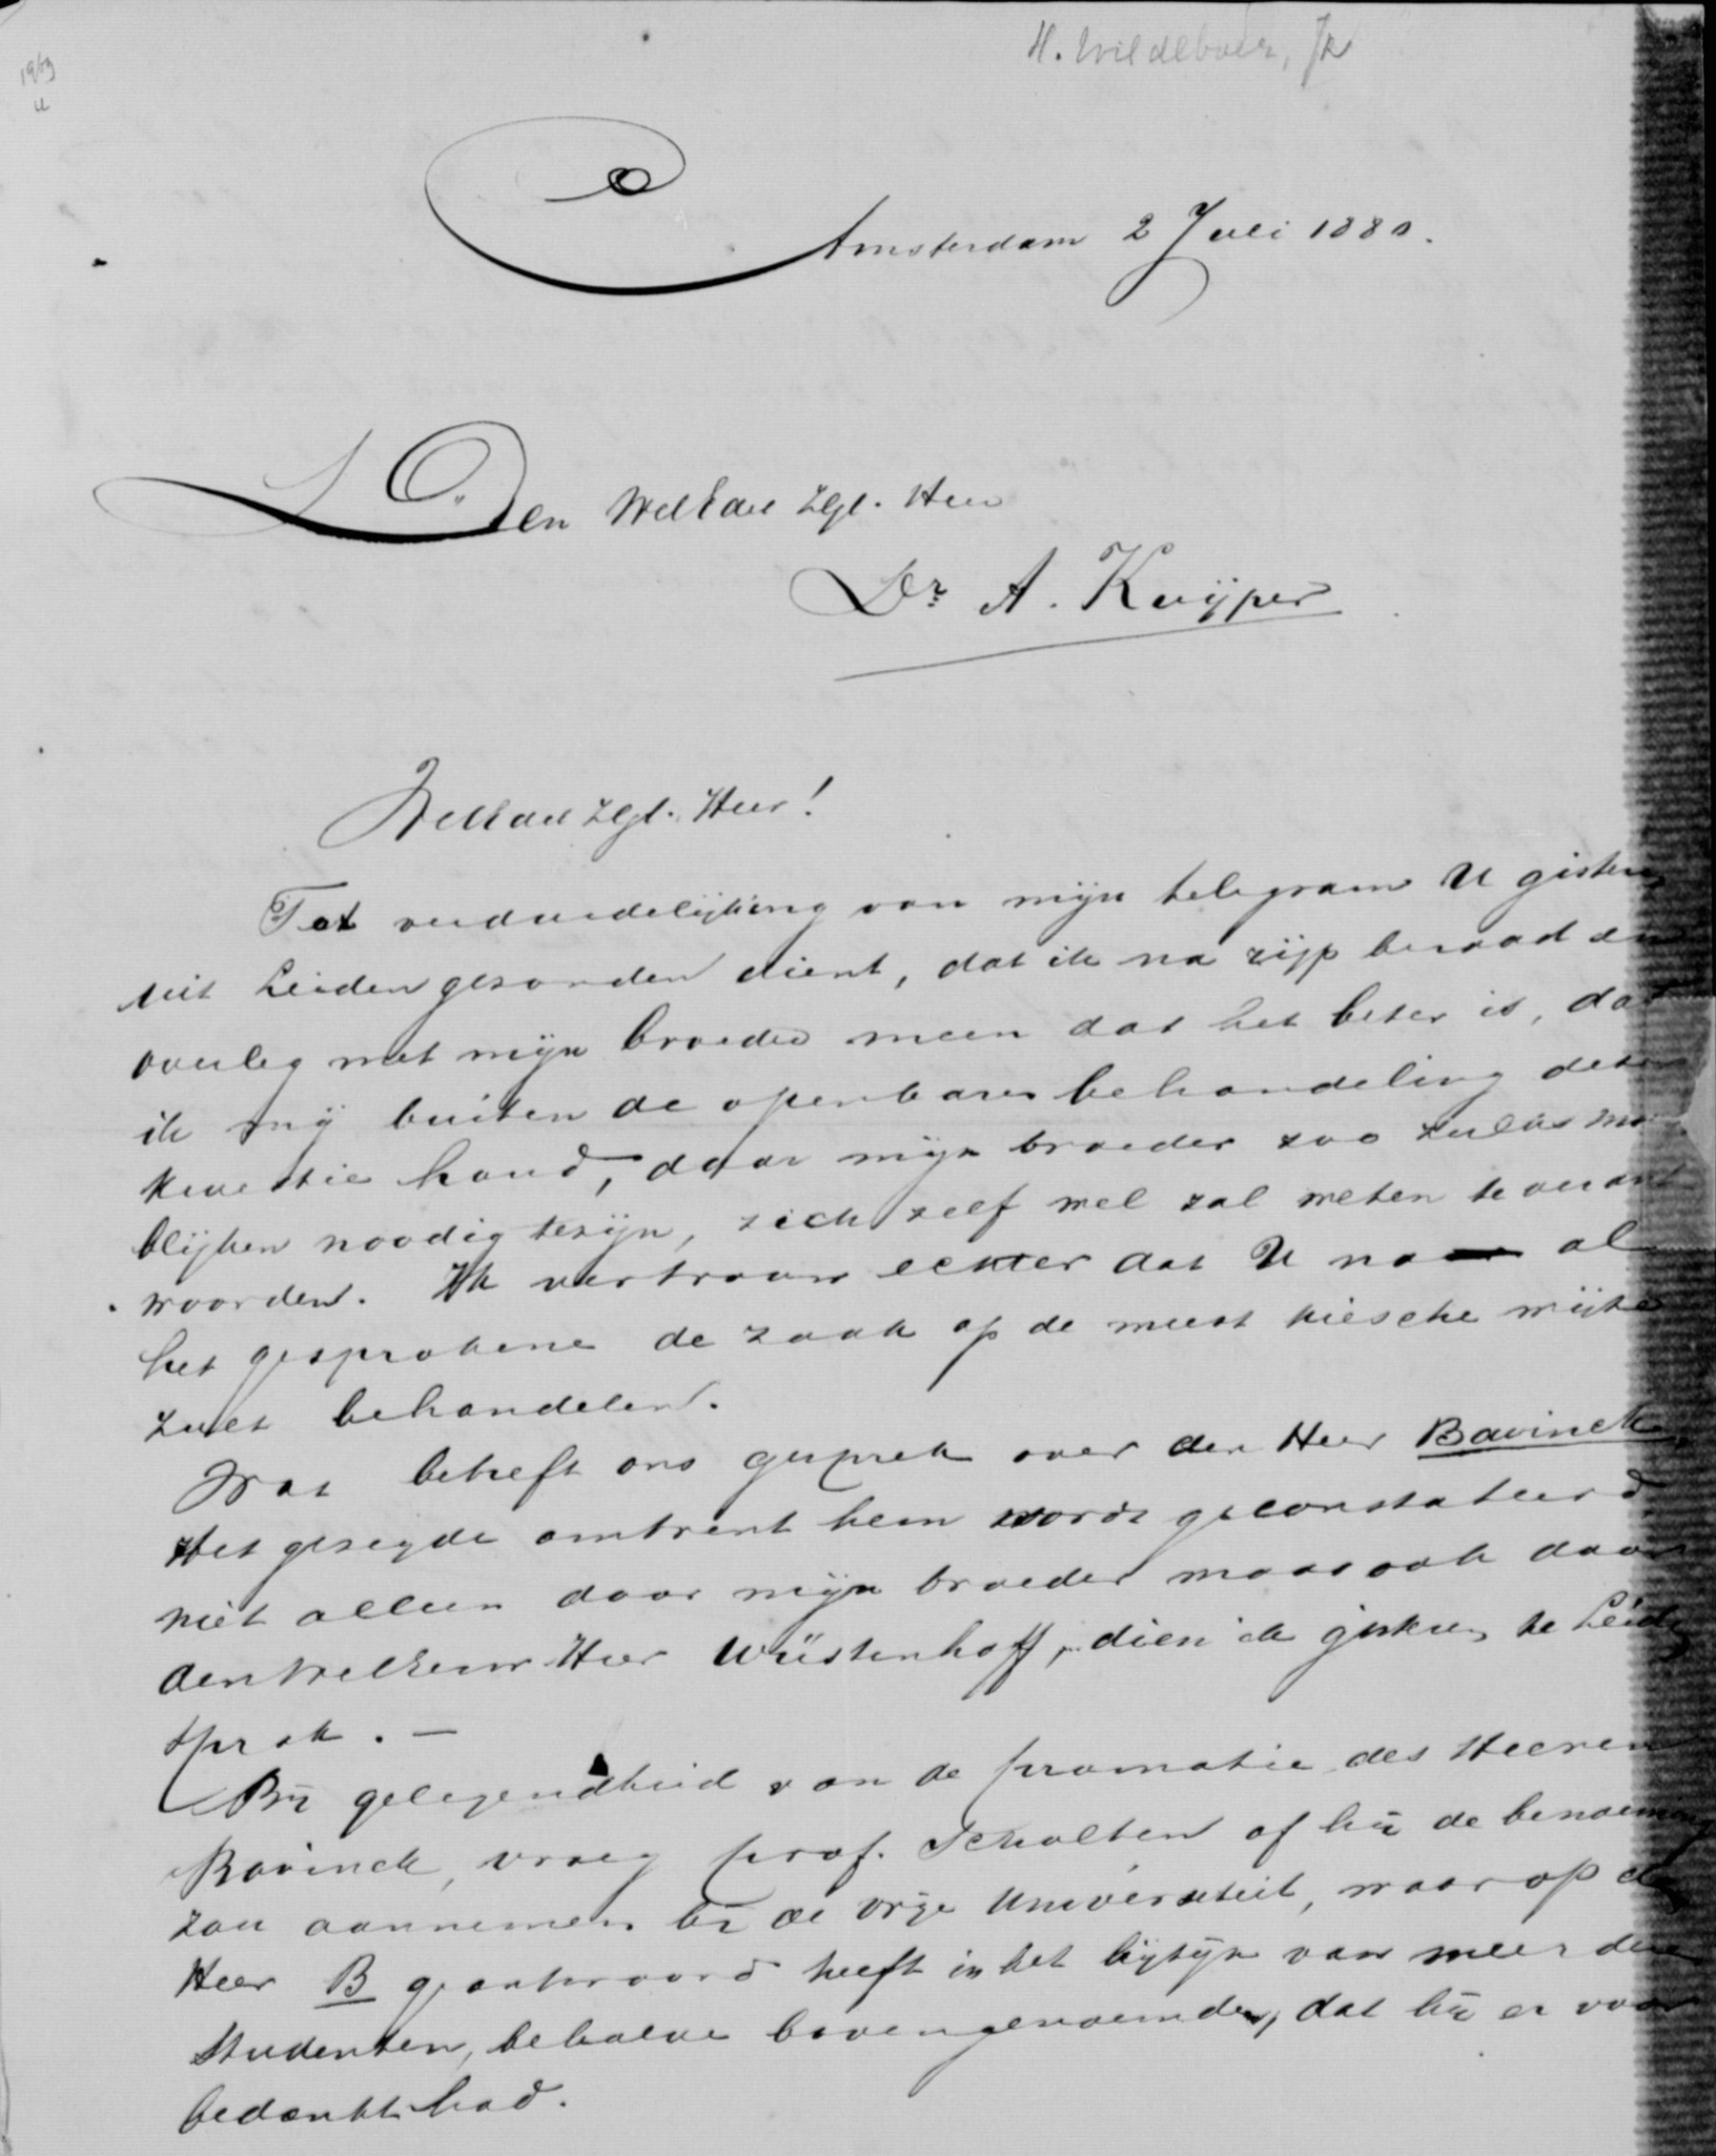 H. Wildeboer, Jr
1963
Amsterdam 2 Juli 1880.
Den WelEdel Zgl. Heer
Dr. A. Kuijper
WelEdel Zgl. Heer!
Tot verduidelijking van mijn telegram U gisteren
uit Leiden gezonden dient, dat ik na rijp beraad en
overleg met mijn broeder meen dat het beter is, dat
ik mij buiten de openbare behandeling dezer
kwestie houd, daar mijn broeder zoo zulks mo
blijken noodig te zijn, zich zelf wel zal weten te verant
woorden. Ik vertrouw echter dat U na al
het gesprokene de zaak op de meest kiesche wijze
zult behandelen.
Wat betreft ons gesprek over den Heer Bavinck,
Het gezegde omtrent hem wordt geconstateerd
niet alleen door mijn broeder maar ook door
den WelEerw Heer Wüstenhoff, dien ik gisteren te Leiden
sprak. —
Bij gelegendheid van de promotie des Heeren
Bavinck, vroeg prof. Scholten of hij de benoeming
zou aannemen bij de vrije Universiteit, waarop de
Heer B geantwoord heeft in het bijzijn van meerdere
studenten, behalve bovengenoemden, dat hij er voor
bedankt had.